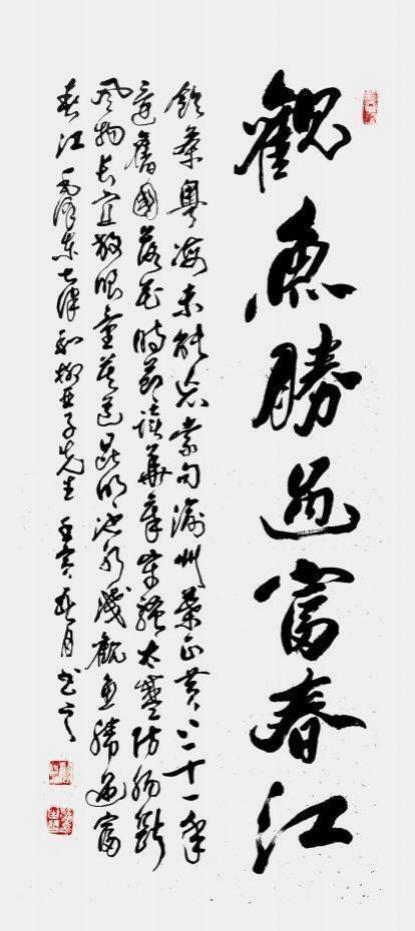 觀魚勝過富春江
飲茶粵海未能忘索句渝州葉正黃三十一年
還舊國落花時節讀華章牢騷太盛防腸斷
風物長宜放眼量莫道昆明池水淺觀魚勝過富
春江 毛澤東七律和柳亞子先生 壬寅秋月书之